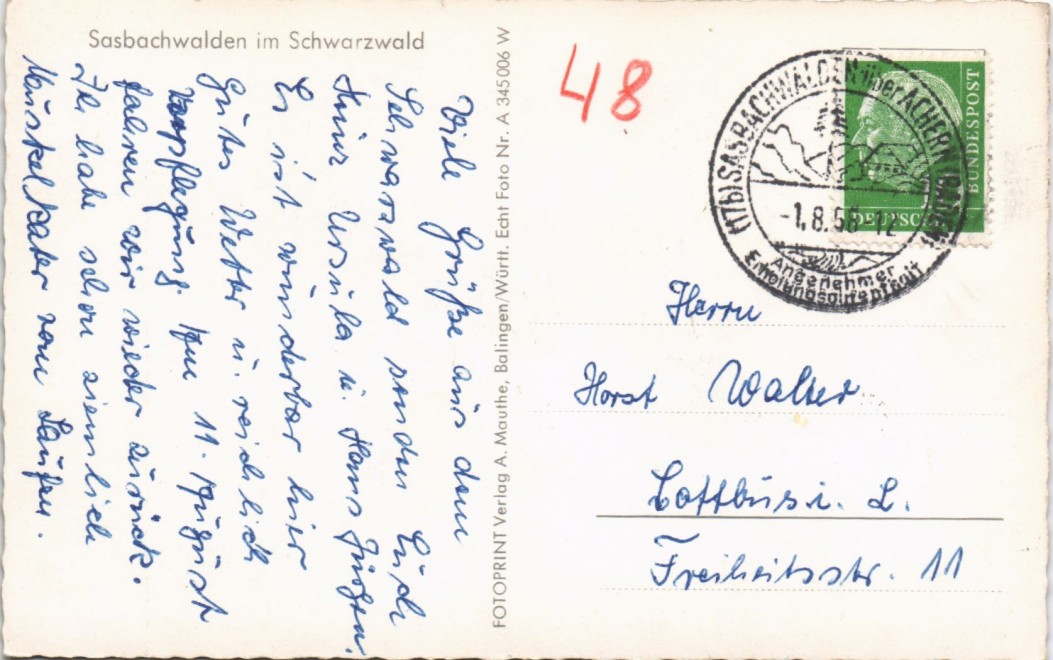 Sasbachwalden im Schwarzwald
Viele Grüße aus dem
Schwarzwald senden Euch
Ursula u. Hans Jürgen.
Es ist wunderbar hier
Gutes Wetter u. reichlich
Verpflegung. Am 11. August
fahren wir wieder zurück.
Ich habe schon ziemlich
Muskelkater vom Laufen.
FOTOPRINT Verlag A. Mauthe, Balingen/Württ. Echt Foto Nr. A 345006 W
48
(17b) SASBACHWALDEN über ACHERN (BADEN)
-1.8.58-12
Angenehmer
Erholungsaufenthalt
DEUTSCHE
BUNDESPOST
Herrn
Horst Walter
Cottbus i. L.
Freiheitsstr. 11